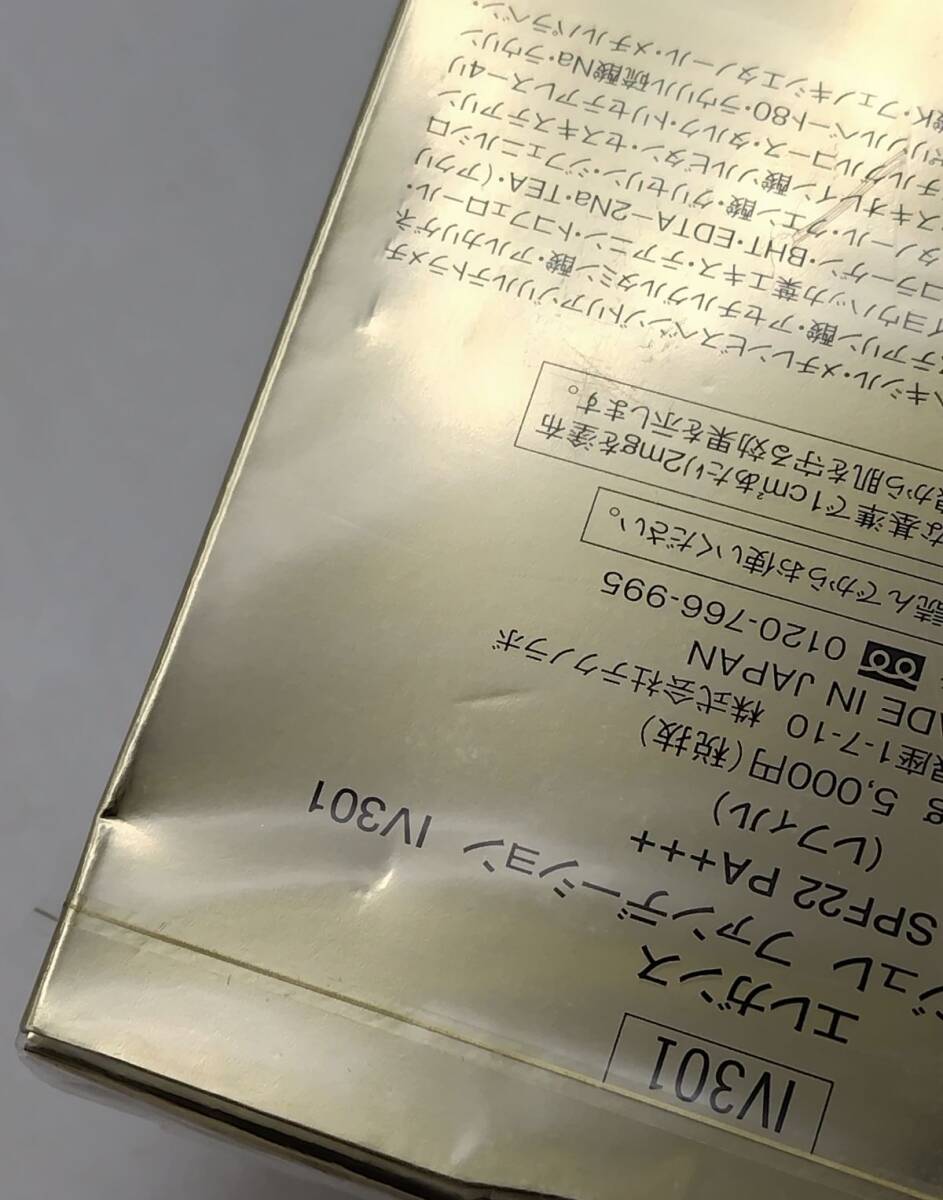 IV301
エレガンス
ジュレ ファンデーション IV301
SPF22 PA+++
(レフィル)
g 5,000円(税抜)
銀座1-7-10 株式会社テクノラボ
MADE IN JAPAN
0120-766-995
読んでからお使いください。
な基準で1cm²あたり2mgを塗布
から肌を守る効果を示します。
キシル・メチレンビスベンゾトリアゾリルテトラメチ
ステアリン酸・アセチルグルタミン酸・アルカリゲネ
イヨウハッカ葉エキス・テアニン・トコフェロール・
コラーゲン・BHT・EDTA-2Na・TEA・(アクリ
タノール・クエン酸・グリセリン・ジフェニルシロ
スキオレイン酸ソルビタン・セスキステアリン
チルグルコース・タルク・トリセテアレス-4リ
ポリソルベート80・ラウリル硫酸Na・ラウリン
酸K・フェノキシエタノール・メチルパラベン・